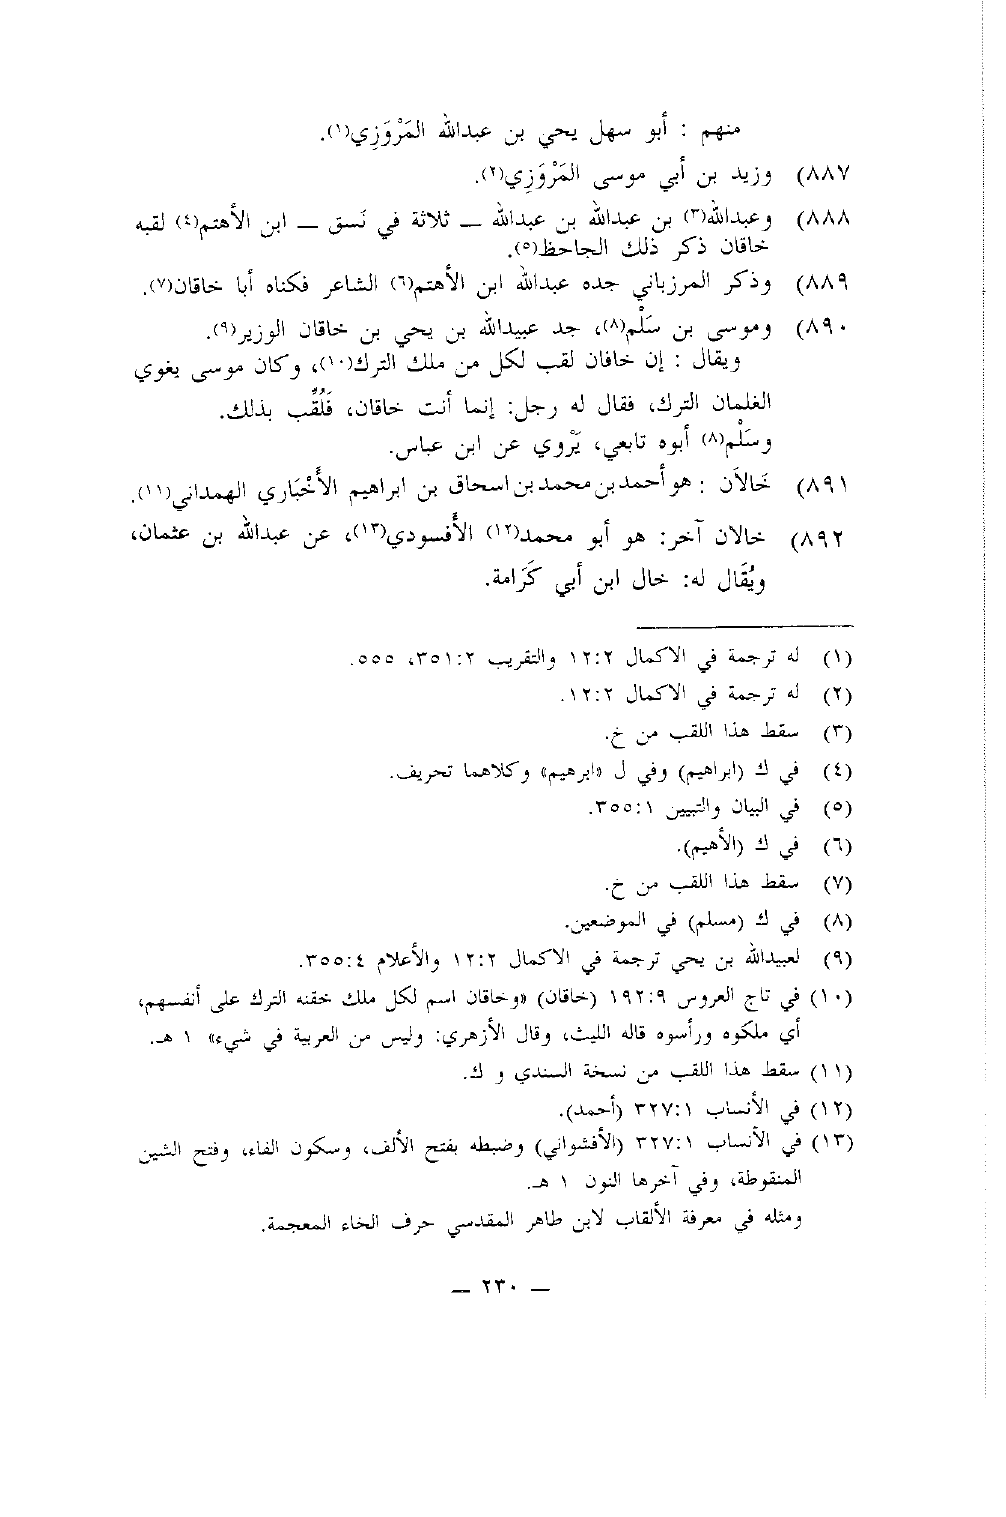 منهم : أبو سهل يحي بن عبدالله المَرْوَزِي(١).
٨٨٧) وزيد بن أبي موسى المَرْوَزِي(٢).
٨٨٨) وعبدالله(٣) بن عبدالله بن عبدالله — ثلاثة في نَسق — ابن الأهتم(٤) لقبه
خاقان ذكر ذلك الجاحظ(٥).
٨٨٩) وذكر المرزباني جده عبدالله ابن الأهتم(٦) الشاعر فكناه أبا خاقان(٧).
٨٩٠) وموسى بن سَلْم(٨)، جد عبيدالله بن يحي بن خاقان الوزير(٩).
ويقال : إن خافان لقب لكل من ملك الترك(١٠)، وكان موسى يغوي
الغلمان الترك، فقال له رجل: إنما أنت خاقان، فَلُقِّب بذلك.
وسَلْم(٨) أبوه تابعي، يَرْوي عن ابن عباس.
٨٩١) خَالاَن : هو أحمد بن محمد بن اسحاق بن ابراهيم الأَخْبَاري الهمداني(١١).
٨٩٢) خالان آخر: هو أبو محمد(١٢) الأَفسودي(١٣)، عن عبدالله بن عثمان،
ويُقَال له: خال ابن أبي كَرَامة.
(١) له ترجمة في الاكمال ١٢:٢ والتقريب ٣٥١:٢، ٥٥٥.
(٢) له ترجمة في الاكمال ١٢:٢.
(٣) سقط هذا اللقب من خ.
(٤) في ك (ابراهيم) وفي ل «ابرهيم» وكلاهما تحريف.
(٥) في البيان والتبيين ٣٥٥:١.
(٦) في ك (الأهيم).
(٧) سقط هذا اللقب من خ.
(٨) في ك (مسلم) في الموضعين.
(٩) لعبيدالله بن يحي ترجمة في الاكمال ١٢:٢ والأعلام ٣٥٥:٤.
(١٠) في تاج العروس ١٩٢:٩ (خاقان) «وخاقان اسم لكل ملك خقنه الترك على أنفسهم،
أي ملكوه ورأسوه قاله الليث، وقال الأزهري: وليس من العربية في شيء» ١ هـ.
(١١) سقط هذا اللقب من نسخة السندي و ك.
(١٢) في الأنساب ٣٢٧:١ (أحمد).
(١٣) في الأنساب ٣٢٧:١ (الأفشواني) وضبطه بفتح الألف، وسكون الفاء، وفتح الشين
المنقوطة، وفي آخرها النون ١ هـ.
ومثله في معرفة الألقاب لابن طاهر المقدسي حرف الخاء المعجمة.
— ٢٣٠ —